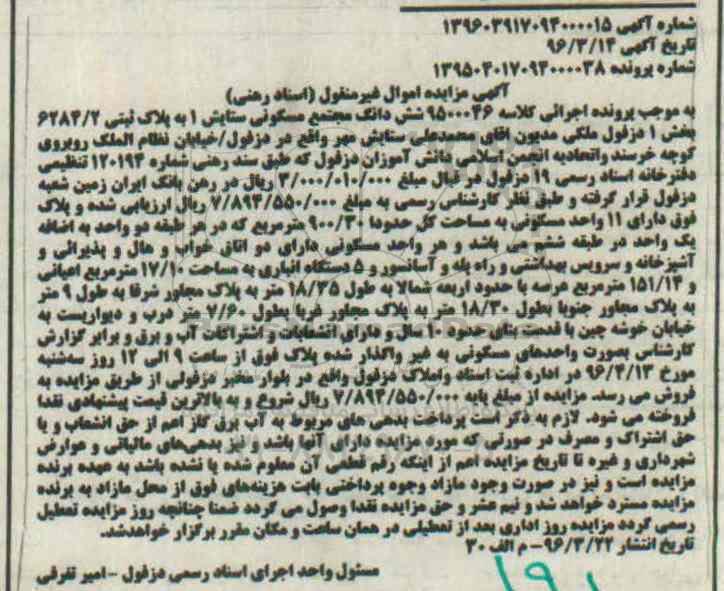 شماره آگهی ۱۳۹۶۰۳۹۱۷۰۹۴۰۰۰۰۱۵
تاریخ آگهی ۹۶/۳/۱۴
شماره پرونده ۱۳۹۵۰۴۰۱۷۰۹۴۰۰۰۰۳۸
آگهی مزایده اموال غیرمنقول (اسناد رهنی)
به موجب پرونده اجرائی کلاسه ۹۵۰۰۰۴۶ شش دانگ مجتمع مسکونی ستایش ۱ به پلاک ثبتی ۶۲۸۴/۲
بخش ۱ دزفول ملکی مدیون اقای محمدعلی ستایش مهر واقع در دزفول/خیابان نظام الملک روبروی
کوچه خرسند واتحادیه انجمن اسلامی دانش آموزان دزفول که طبق سند رهنی شماره ۱۲۰۱۹۴ تنظیمی
دفترخانه اسناد رسمی ۱۹ دزفول در قبال مبلغ ۳/۰۰۰/۰۱۰/۰۰۰ ریال در رهن بانک ایران زمین شعبه
دزفول قرار گرفته و طبق نظر کارشناس رسمی به مبلغ ۷/۸۹۴/۵۵۰/۰۰۰ ریال ارزیابی شده و پلاک
فوق دارای ۱۱ واحد مسکونی به مساحت کل حدودا ۹۰۰/۳۰ مترمربع که در هر طبقه دو واحد به اضافه
یک واحد در طبقه ششم می باشد و هر واحد مسکونی دارای دو اتاق خواب و هال و پذیرائی و
آشپزخانه و سرویس بهداشتی و راه پله و آسانسور و ۵ دستگاه انباری به مساحت ۱۷/۱۰ مترمربع اعیانی
و ۱۵۱/۱۴ مترمربع عرصه با حدود اربعه شمالا به طول ۱۸/۳۵ متر به پلاک مجاور شرقا به طول ۹ متر
به پلاک مجاور جنوبا بطول ۱۸/۳۰ متر به پلاک مجاور غربا بطول ۷/۶۰ متر درب و دیواریست به
خیابان خوشه چین با قدمت بنای حدود ۱۰ سال و دارای انشعابات و اشتراکات آب و برق و برابر گزارش
کارشناس بصورت واحدهای مسکونی به غیر واگذار شده پلاک فوق از ساعت ۹ الی ۱۲ روز سه‌شنبه
مورخ ۹۶/۴/۱۳ در اداره ثبت اسناد واملاک دزفول واقع در بلوار مخبر دزفولی از طریق مزایده به
فروش می رسد. مزایده از مبلغ پایه ۷/۸۹۴/۵۵۰/۰۰۰ ریال شروع و به بالاترین قیمت پیشنهادی نقدا
فروخته می شود. لازم به ذکر است پرداخت بدهی های مربوط به آب برق گاز اعم از حق انشعاب و یا
حق اشتراک و مصرف در صورتی که مورد مزایده دارای آنها باشد و نیز بدهی‌های مالیاتی و عوارض
شهرداری و غیره تا تاریخ مزایده اعم از اینکه رقم قطعی آن معلوم شده یا نشده باشد به عهده برنده
مزایده است و نیز در صورت وجود مازاد وجوه پرداختی بابت هزینه‌های فوق از محل مازاد به برنده
مزایده مسترد خواهد شد و نیم عشر و حق مزایده نقدا وصول می گردد ضمنا چنانچه روز مزایده تعطیل
رسمی گردد مزایده روز اداری بعد از تعطیلی در همان ساعت و مکان مقرر برگزار خواهدشد.
تاریخ انتشار ۹۶/۳/۲۲- م الف ۳۰
مسئول واحد اجرای اسناد رسمی دزفول -امیر تفرقی